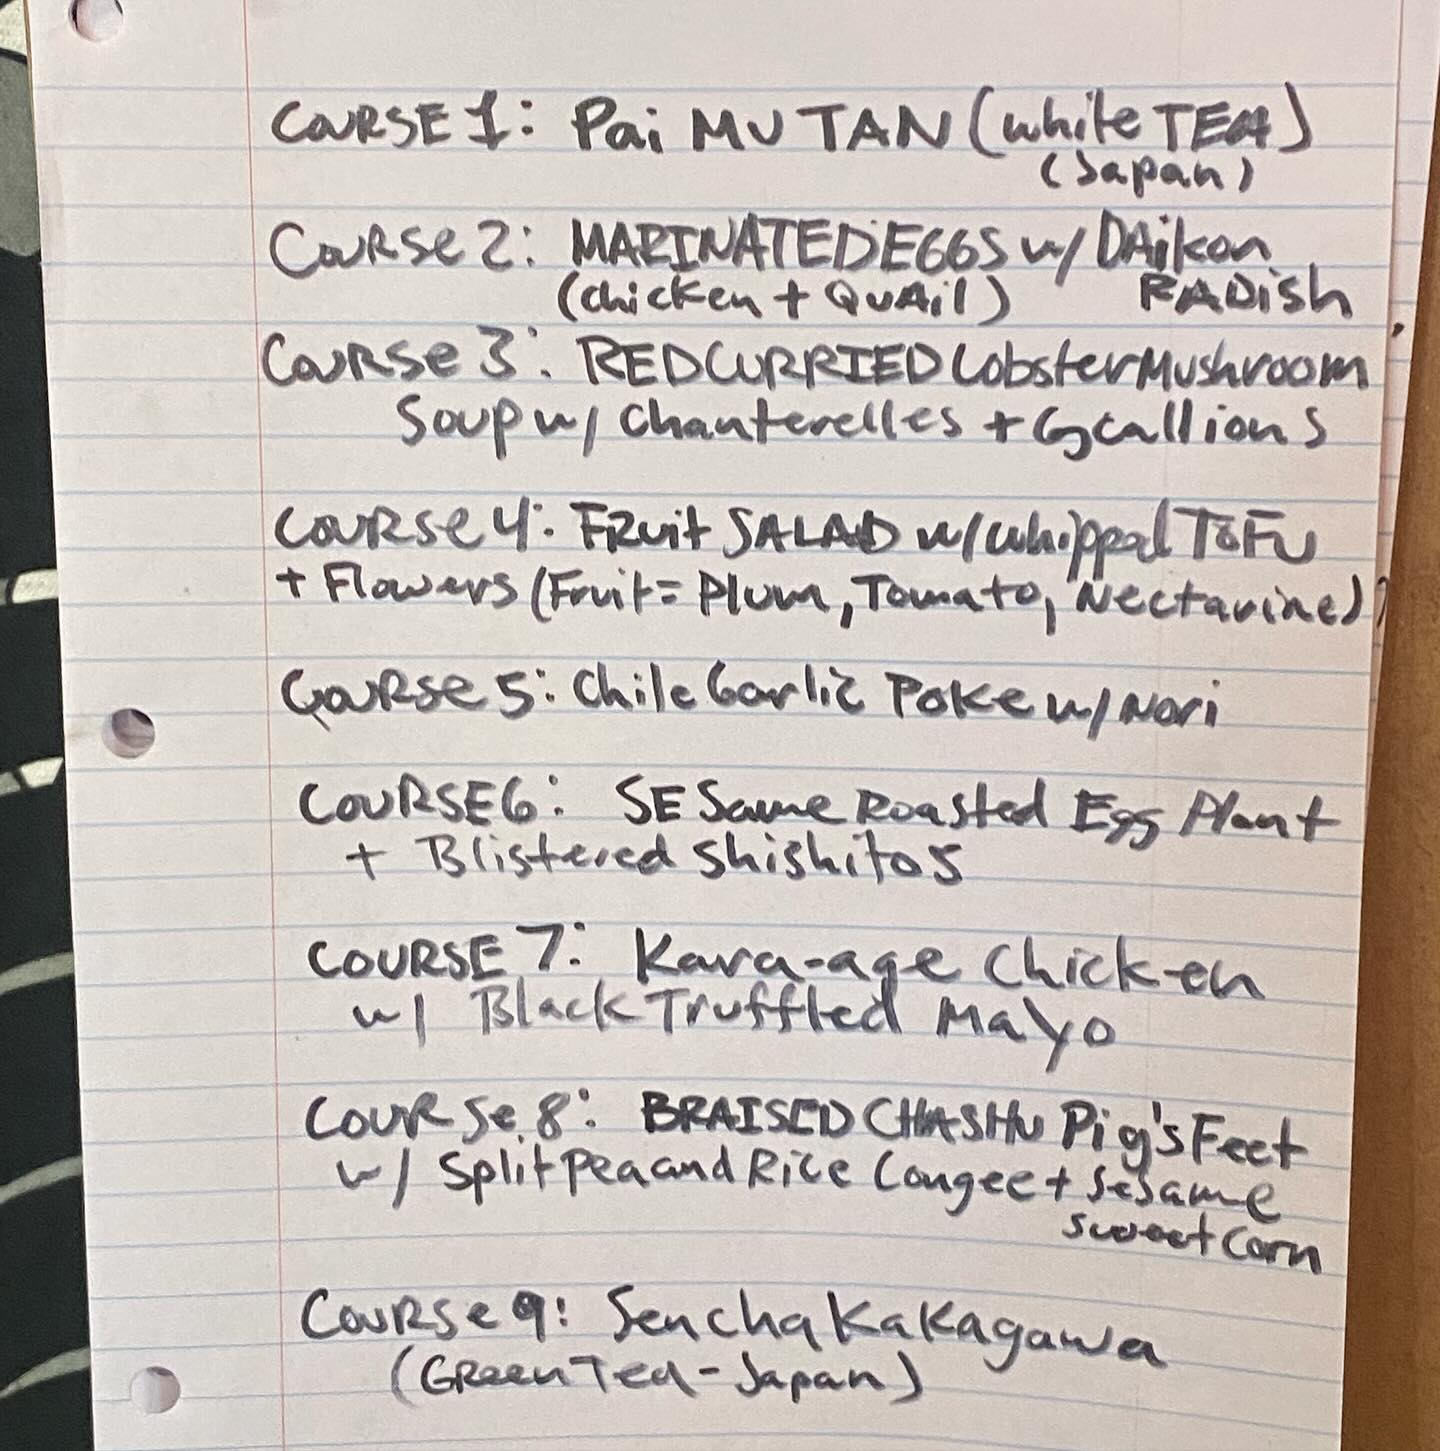 COURSE 1: Pai MU TAN (white TEA)
(Japan)
Course 2: MARINATED EGGS w/ DAikon
(chicken + QuAil) RADish
Course 3: RED CURRIED Lobster Mushroom
Soup w/ Chanterelles + Scallions
Course 4: FRuit SALAD w/ whipped ToFu
+ Flowers (Fruit = Plum, Tomato, Nectarine)
Course 5: Chile Garlic Poke w/ Nori
COURSE 6: SESame Roasted Egg Plant
+ Blistered Shishitos
COURSE 7: Kara-age Chicken
w/ Black Truffled Mayo
Course 8: BRAISED CHASHU Pig's Feet
w/ Split Pea and Rice Congee + Sesame
Sweet Corn
Course 9: Sencha Kakagawa
(Green Tea - Japan)